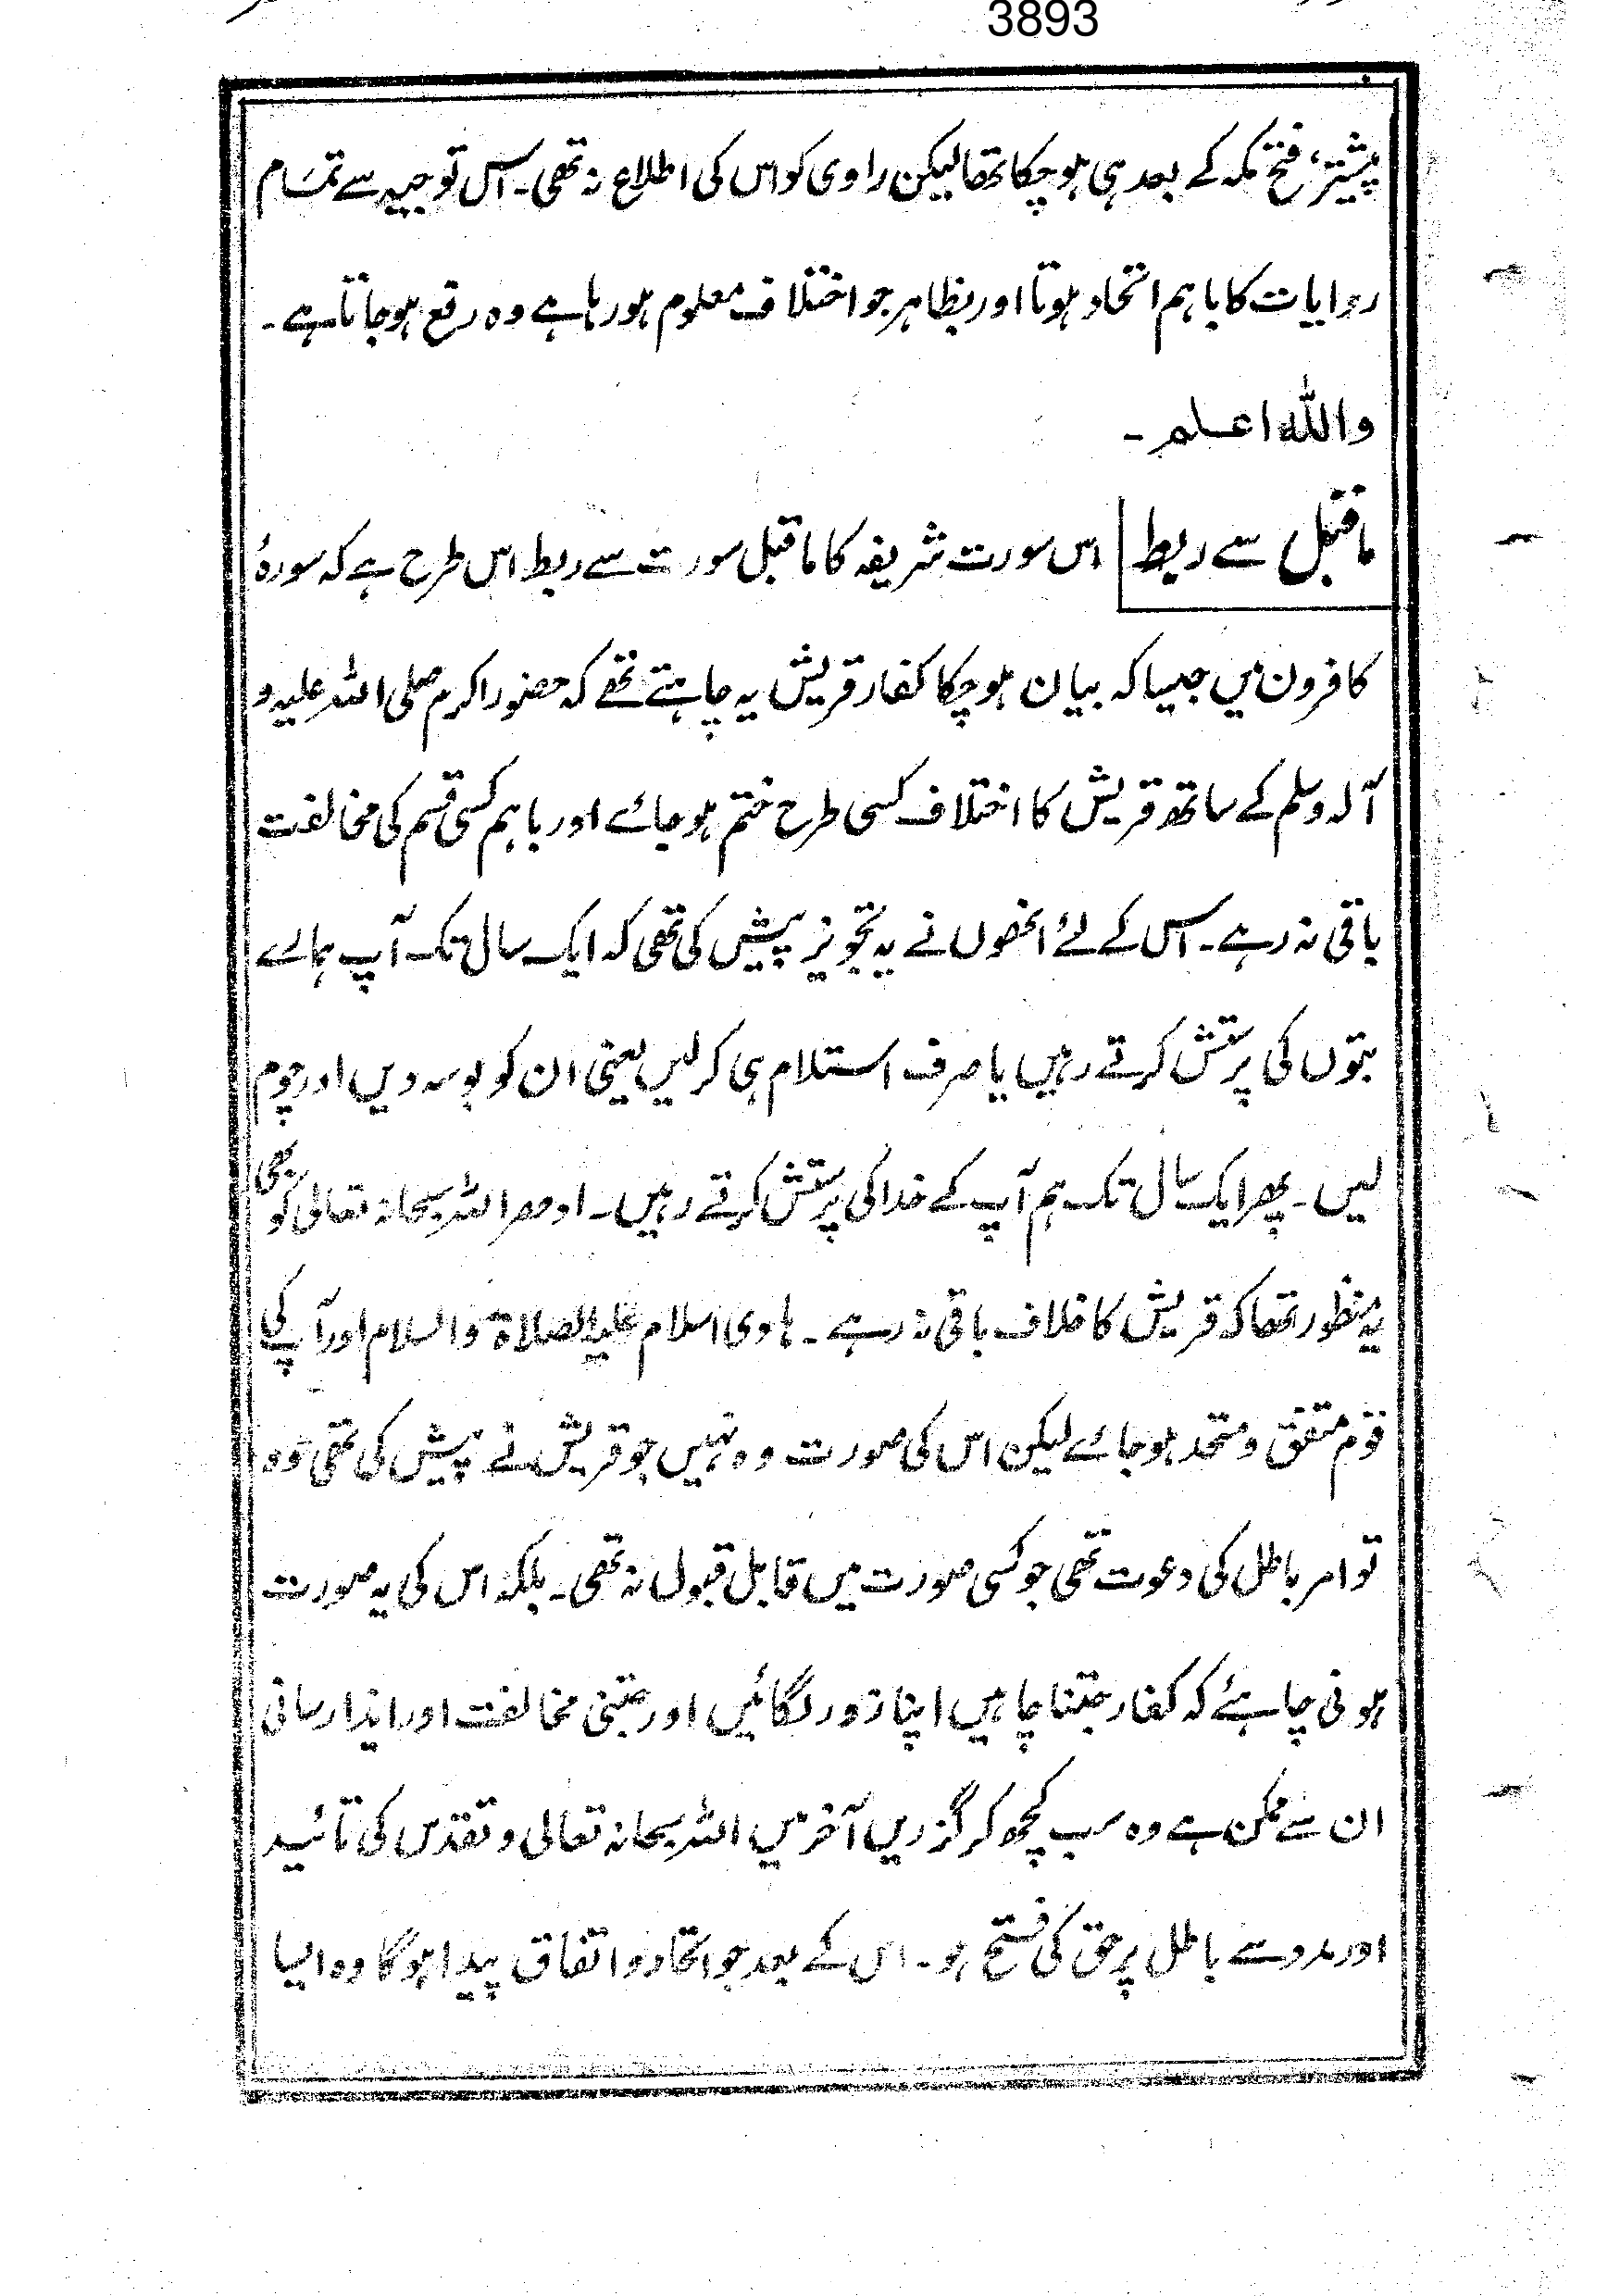 3893
پیشتر، فتح مکہ کے بعد ہی ہوچکا تھا لیکن راوی کو اس کی اطلاع نہ تھی۔ اس توجیہہ سے تمام
روایات کا باہم اتحاد ہوتا اور بظاہر جو اختلاف معلوم ہورہا ہے وہ رفع ہوجاتا ہے۔
واللہ اعلم۔
ماقبل سے ربط اس سورت شریفہ کا ماقبل سورت سے ربط اس طرح ہے کہ سورۂ
کافرون میں جیسا کہ بیان ہوچکا کفار قریش یہ چاہتے تھے کہ حضور اکرم صلی اللہ علیہ و
آلہ وسلم کے ساتھ قریش کا اختلاف کسی طرح ختم ہوجائے اور باہم کسی قسم کی مخالفت
باقی نہ رہے۔ اس کے لئے انھوں نے یہ تجویز پیش کی تھی کہ ایک سال تک آپ ہمارے
بتوں کی پرستش کرتے رہیں یا صرف استلام ہی کرلیں یعنی ان کو بوسہ دیں اور چوم
لیں۔ پھر ایک سال تک ہم آپ کے خدا کی پرستش کرتے رہیں۔ ادھر اللہ سبحانہ تعالی کو بھی
یہ منظور تھا کہ قریش کا خلاف باقی نہ رہے۔ ہادی اسلام علیہ الصلاۃ والسلام اور آپ کی
قوم متفق و متحد ہوجائے لیکن اس کی صورت وہ نہیں جو قریش نے پیش کی تھی وہ
تو امر باطل کی دعوت تھی جو کسی صورت میں قابل قبول نہ تھی۔ بلکہ اس کی یہ صورت
ہونی چاہئے کہ کفار جتنا چاہیں اپنا زور لگائیں اور جتنی مخالفت اور ایذا رسانی
ان سے ممکن ہے وہ سب کچھ کر گزریں آخر میں اللہ سبحانہ تعالی و تقدس کی تائید
اور مدد سے باطل پر حق کی فتح ہو۔ اس کے بعد جو اتحاد و اتفاق پیدا ہوگا وہ ایسا